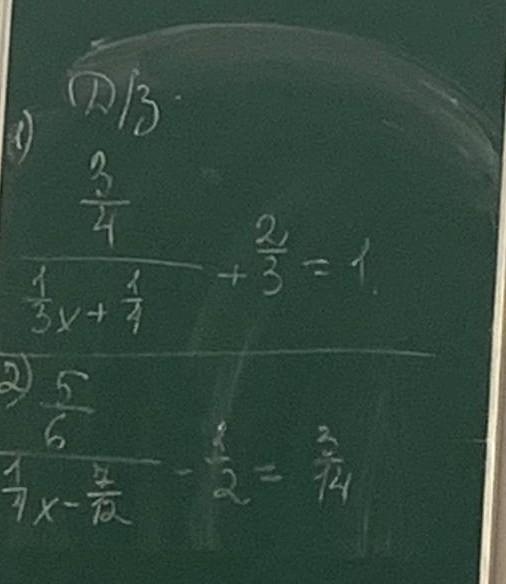 Д/З.
1) \frac{\frac{3}{4}}{\frac{1}{3}x+\frac{1}{4}} + \frac{2}{3} = 1.
2) \frac{\frac{5}{6}}{\frac{1}{4}x-\frac{7}{12}} - \frac{1}{2} = \frac{3}{14}